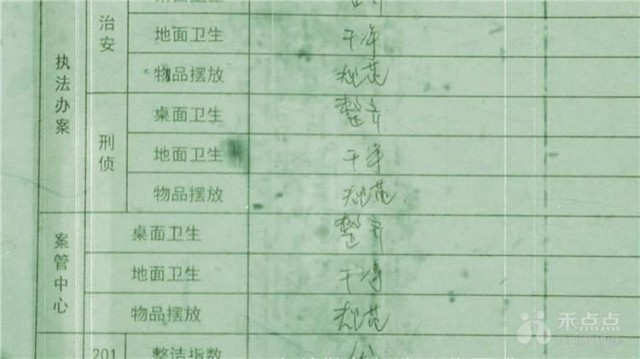 治安
地面卫生 干净
物品摆放 规范
执法办案
刑侦
桌面卫生 整齐
地面卫生 干净
物品摆放 规范
案管中心
桌面卫生 整齐
地面卫生 干净
物品摆放 规范
201 整洁指数
禾点点